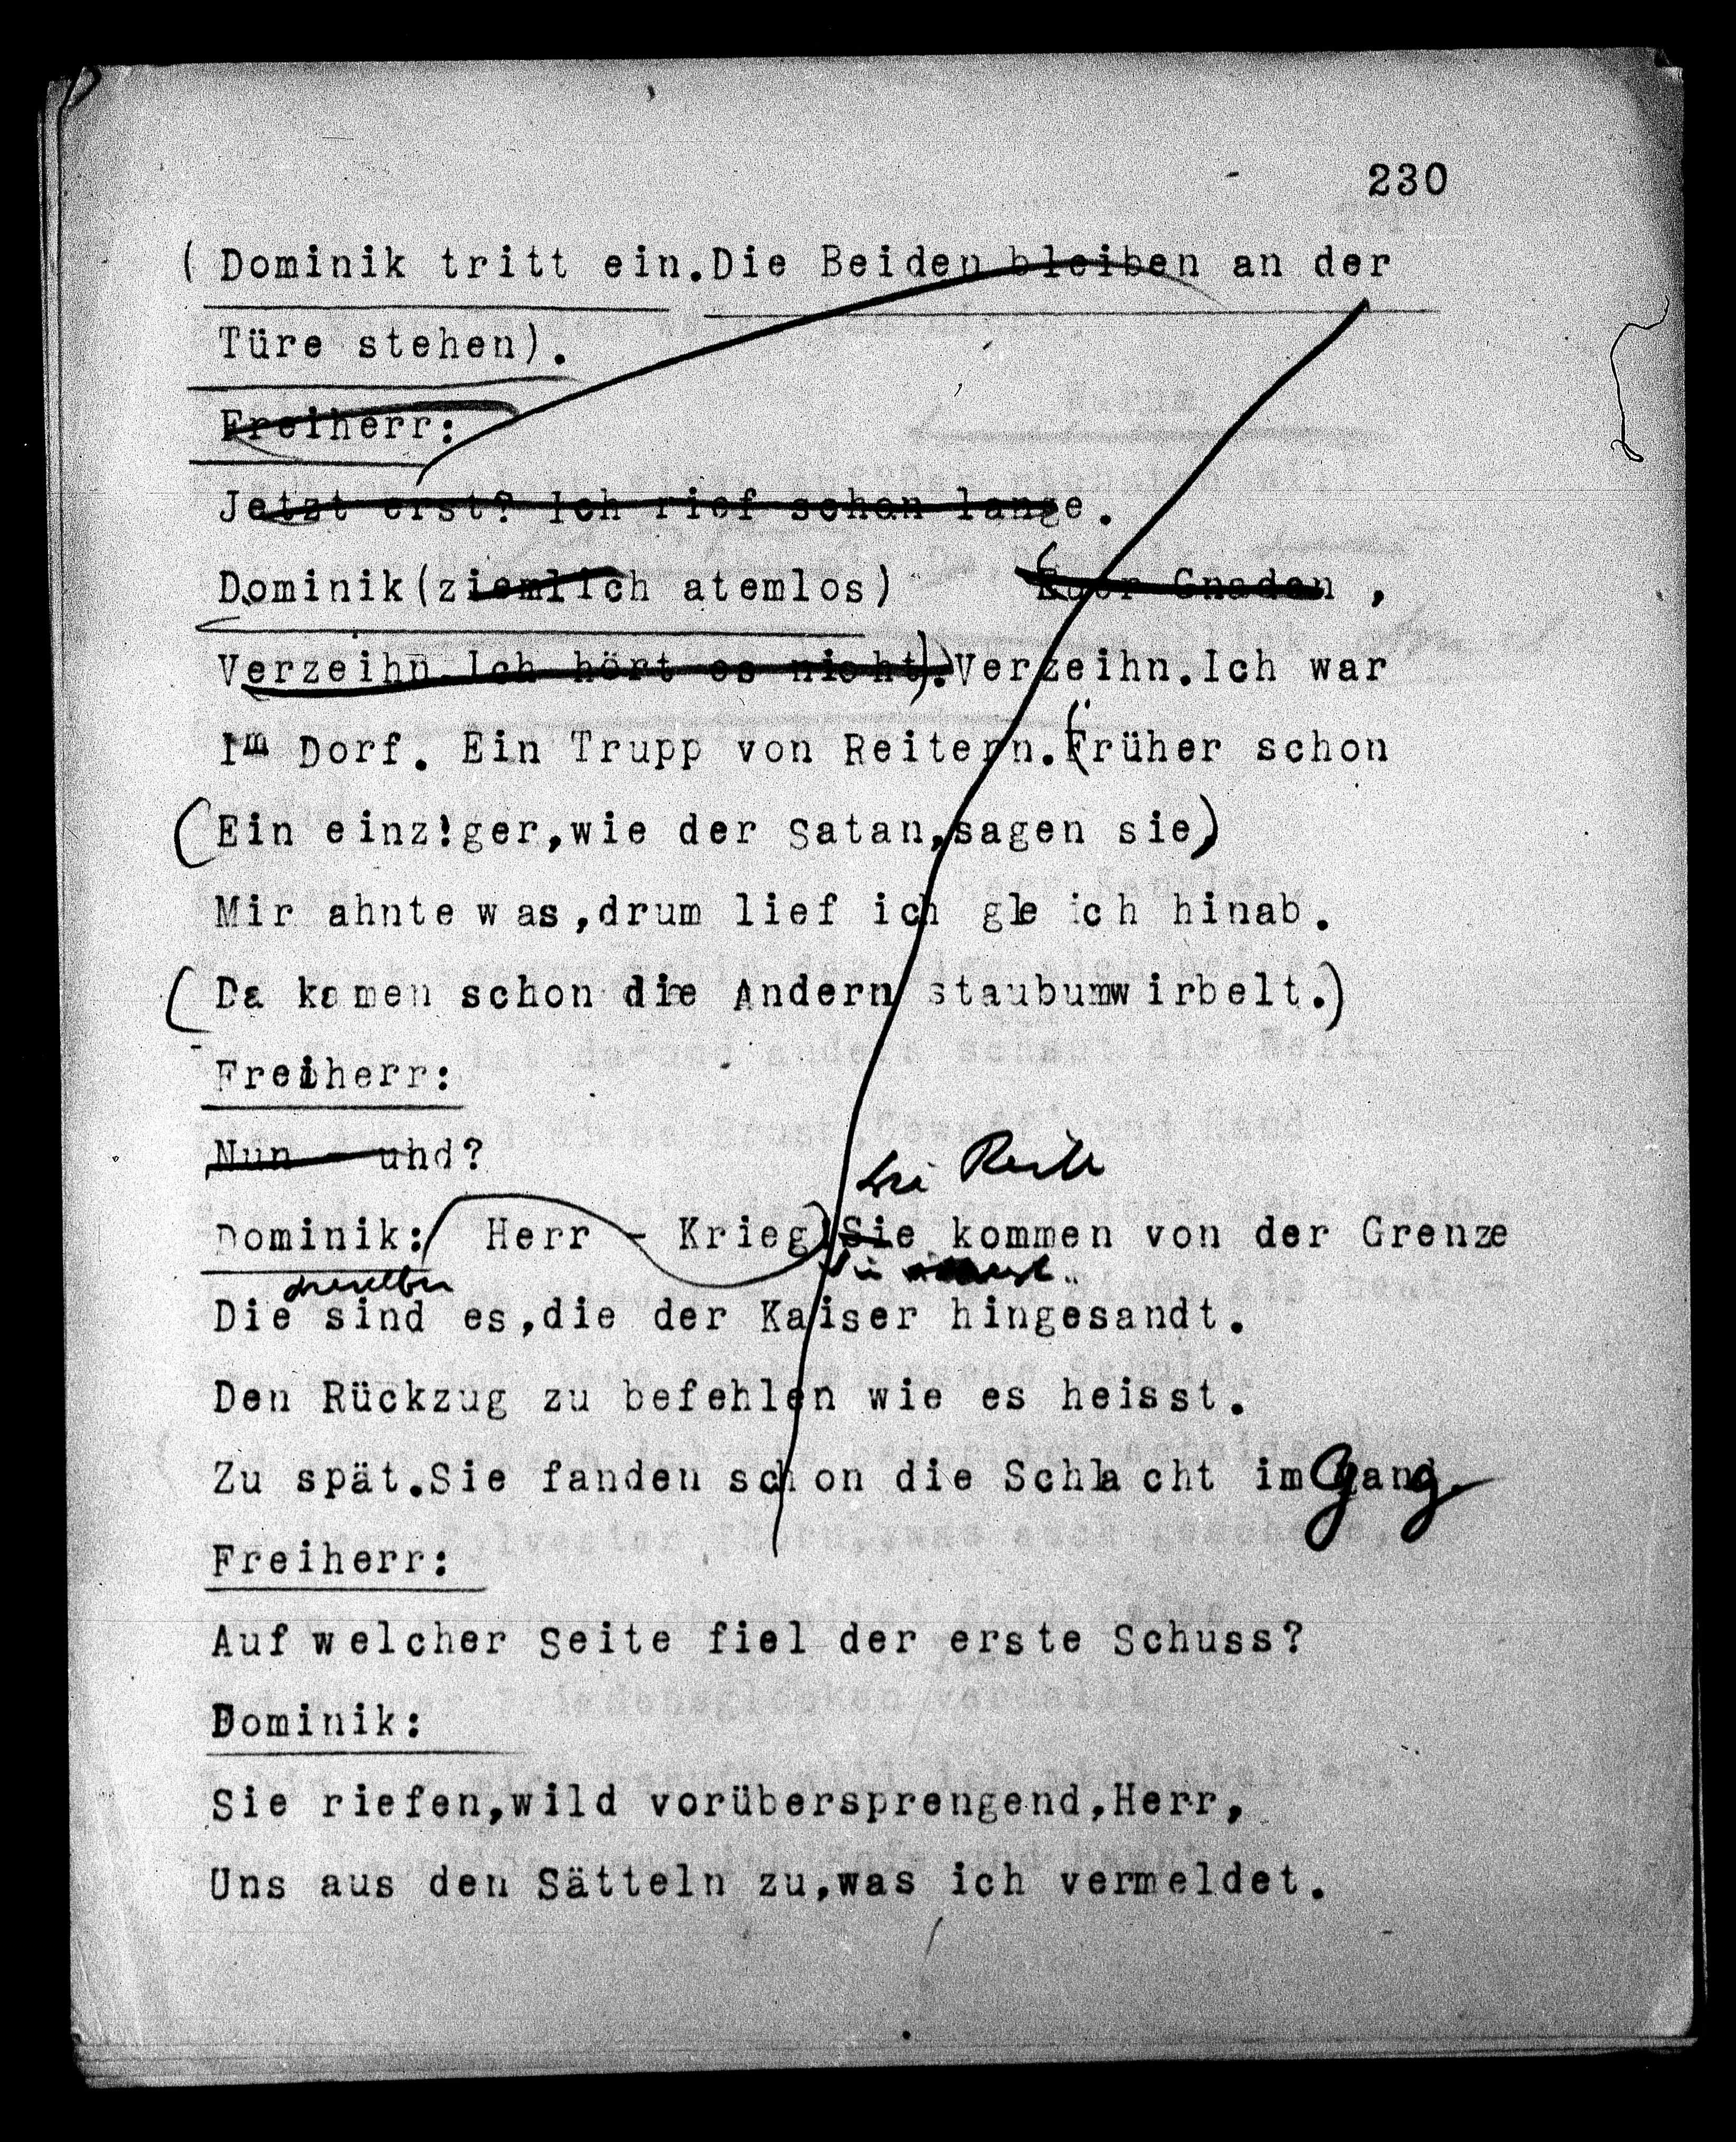 230
( Dominik tritt ein. Die Beiden bleiben an der
Türe stehen).
Freiherr:
Jetzt erst? Ich rief schon lange.
Dominik (ziemlich atemlos) Euer Gnaden ,
Verzeihn. Ich hört es nicht). Verzeihn. Ich war
Im Dorf. Ein Trupp von Reitern. (Früher schon
(Ein einz!ger, wie der Satan, sagen sie)
Mir ahnte was, drum lief ich gleich hinab.
(Da kamen schon die Andern staubumwirbelt.)
Freiherr:
Nun - und?
drei Reiter
Dominik: ( Herr - Krieg) Sie kommen von der Grenze
dieselben Sie
Die sind es, die der Kaiser hingesandt.
Den Rückzug zu befehlen wie es heisst.
Zu spät. Sie fanden schon die Schlacht im Gang.
Freiherr:
Auf welcher Seite fiel der erste Schuss?
Dominik:
Sie riefen, wild vorübersprengend, Herr,
Uns aus den Sätteln zu, was ich vermeldet.